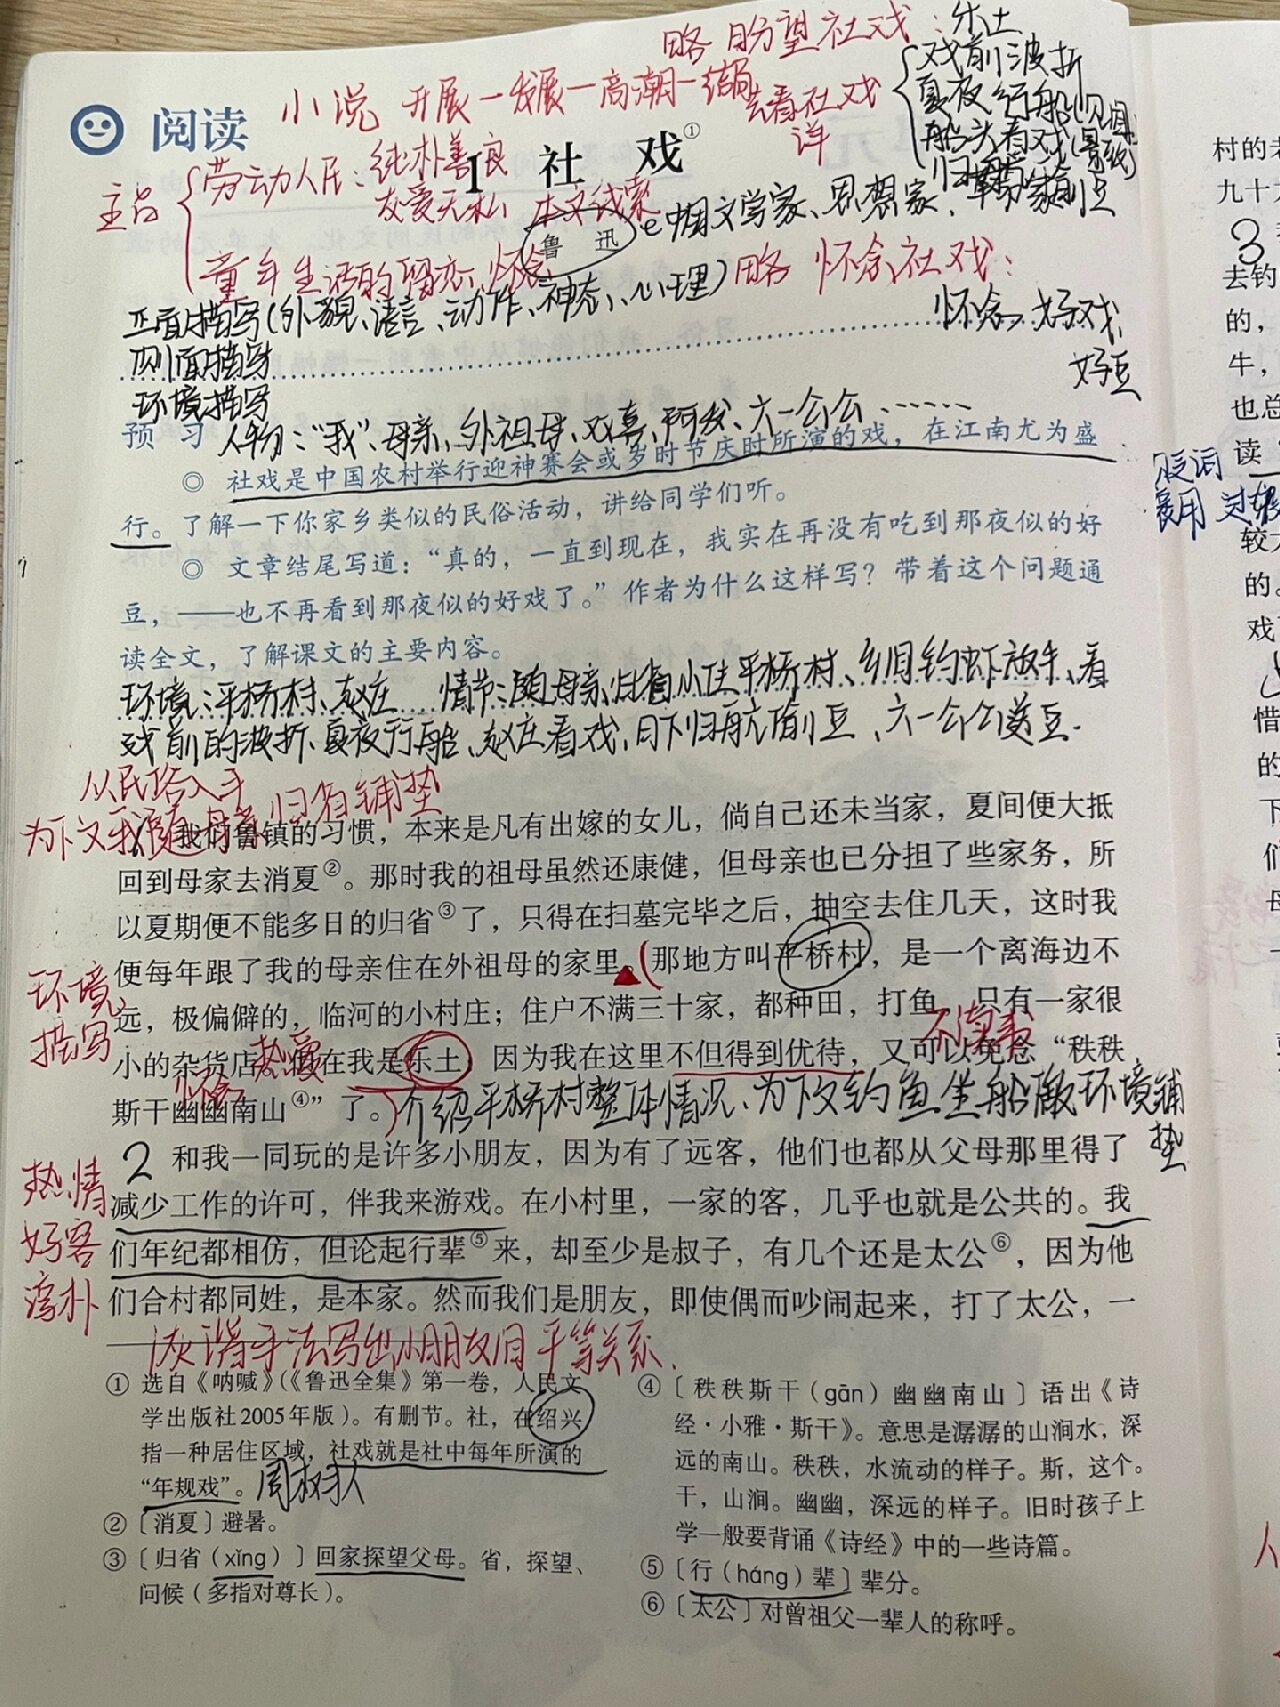 略 盼望社戏：乐土
小说 开展—发展—高潮—结局
去看社戏
详
戏前波折
夏夜行船
船头看戏
阅读
1 社戏①
主旨
劳动人民：纯朴善良
友爱无私 本文线索
鲁迅
中国文学家、思想家、革命家
童年生活的留恋、怀念
略 怀念社戏：
怀念 好戏
好豆
正面描写(外貌、语言、动作、神态、心理)
侧面描写
环境描写
预习
人物：“我”、母亲、外祖母、双喜、阿发、六一公公……
◎ 社戏是中国农村举行迎神赛会或岁时节庆时所演的戏，在江南尤为盛
行。了解一下你家乡类似的民俗活动，讲给同学们听。
◎ 文章结尾写道：“真的，一直到现在，我实在再没有吃到那夜似的好
豆，——也不再看到那夜似的好戏了。”作者为什么这样写？带着这个问题通
读全文，了解课文的主要内容。
环境：平桥村、赵庄 情节：随母亲归省小住平桥村、乡间钓虾放牛、看
戏前的波折、夏夜行船、赵庄看戏、月下归航偷豆、六一公公送豆.
从民俗入手
为下文我随母亲归省铺垫
我们鲁镇的习惯，本来是凡有出嫁的女儿，倘自己还未当家，夏间便大抵
回到母家去消夏②。那时我的祖母虽然还康健，但母亲也已分担了些家务，所
以夏期便不能多日的归省③了，只得在扫墓完毕之后，抽空去住几天，这时我
便每年跟了我的母亲住在外祖母的家里。那地方叫平桥村，是一个离海边不
远，极偏僻的，临河的小村庄；住户不满三十家，都种田，打鱼，只有一家很
小的杂货店。但在我是乐土：因为我在这里不但得到优待，又可以免念“秩秩
斯干幽幽南山④”了。
环境
描写
热爱
怀念
不读书
介绍平桥村整体情况、为下文钓鱼坐船做环境铺
垫
2 和我一同玩的是许多小朋友，因为有了远客，他们也都从父母那里得了
减少工作的许可，伴我来游戏。在小村里，一家的客，几乎也就是公共的。我
们年纪都相仿，但论起行辈⑤来，却至少是叔子，有几个还是太公⑥，因为他
们合村都同姓，是本家。然而我们是朋友，即使偶而吵闹起来，打了太公，一
热情
好客
淳朴
诙谐手法写出小朋友间平等关系.
① 选自《呐喊》（《鲁迅全集》第一卷，人民文
学出版社2005年版）。有删节。社，在绍兴
指一种居住区域，社戏就是社中每年所演的
“年规戏”。
周树人
②〔消夏〕避暑。
③〔归省（xǐng）〕回家探望父母。省，探望、
问候（多指对尊长）。
④〔秩秩斯干（gān）幽幽南山〕语出《诗
经·小雅·斯干》。意思是潺潺的山涧水，深
远的南山。秩秩，水流动的样子。斯，这个。
干，山涧。幽幽，深远的样子。旧时孩子上
学一般要背诵《诗经》中的一些诗篇。
⑤〔行（háng）辈〕辈分。
⑥〔太公〕对曾祖父一辈人的称呼。
村的
九十
3
去钓
的，
牛，
也总
读
贬词
褒用
较
的。
戏
惜
的
下
们
母